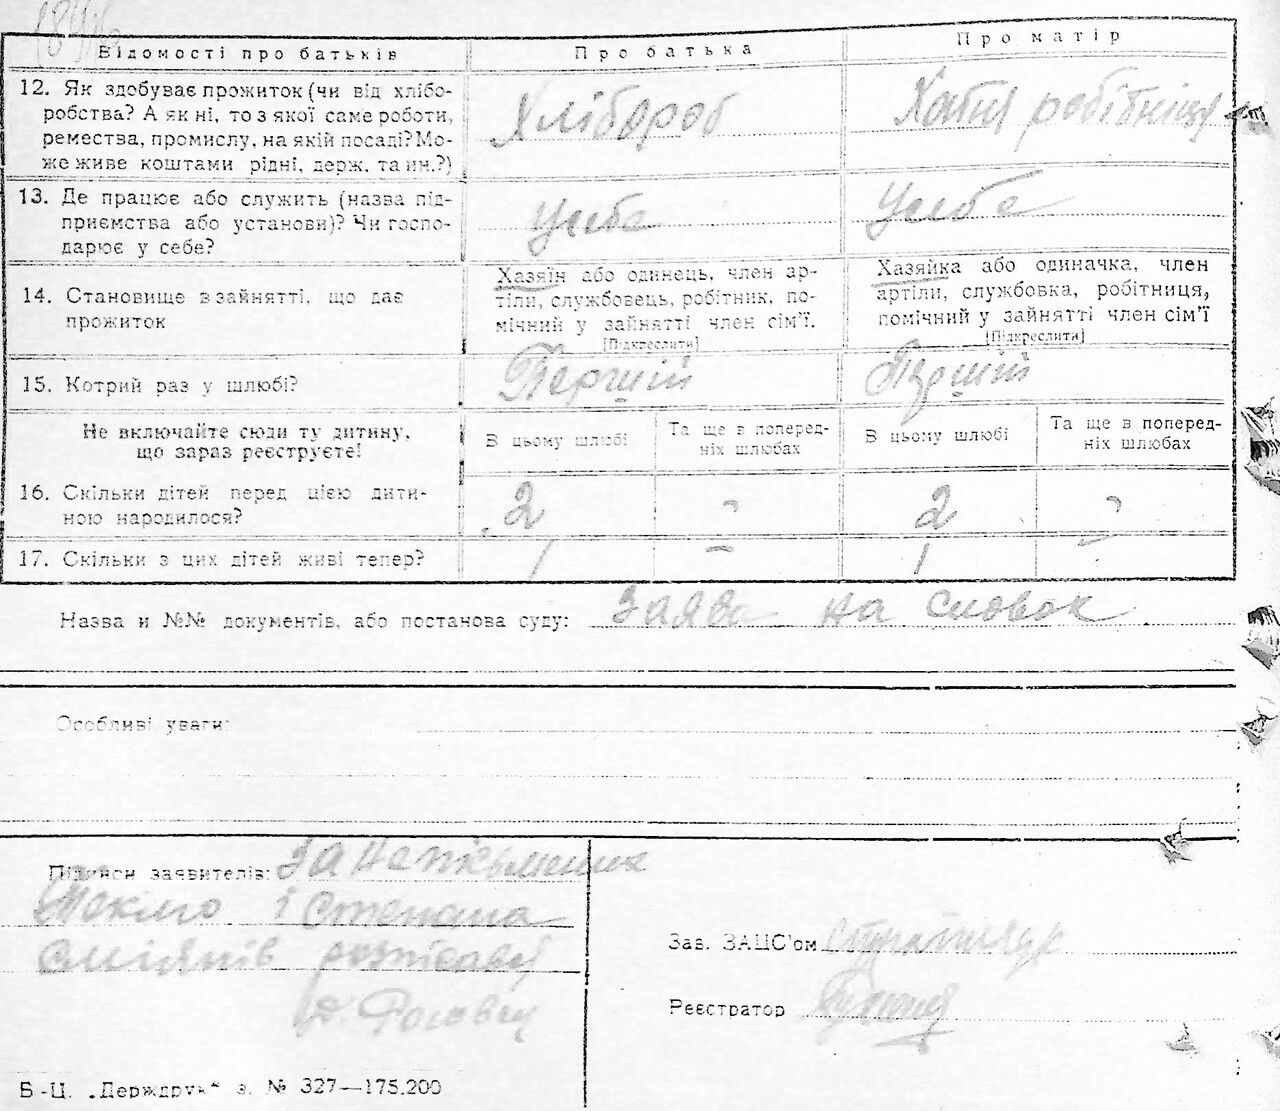 Відомості про батьків Про батька Про матір
12. Як здобуває прожиток (чи від хлібо-
робства? А як ні, то з якої саме роботи,
ремества, промислу, на якій посаді? Мо-
же живе коштами рідні, держ. та ин.?)
Хлібороб
Хатня робітниця
13. Де працює або служить (назва під-
приємства або установи)? Чи госпо-
дарює у себе?
У себе
У себе
14. Становище в зайнятті, що дає
прожиток
Хазяїн або одинець, член ар-
тіли, службовець, робітник, по-
мічний у зайнятті член сім'ї.
[Підкреслити]
Хазяйка або одиначка, член
артіли, службовка, робітниця,
помічний у зайнятті член сім'ї
[Підкреслити]
15. Котрий раз у шлюбі?
Перший
Перший
Не включайте сюди ту дитину,
що зараз реєструєте!
В цьому шлюбі
Та ще в поперед-
ніх шлюбах
В цьому шлюбі
Та ще в поперед-
ніх шлюбах
16. Скільки дітей перед цією дити-
ною народилося?
2 - 2 -
17. Скільки з цих дітей живі тепер?
1 - 1 -
Назва и №№ документів, або постанова суду: заява на словах
Особливі уваги:
Підписи заявителів: За неписьменних
і Степана
розписався
Зав. ЗАЦС'ом
Реєстратор
Б-Ц. „Держдрук“ з. № 327—175.200